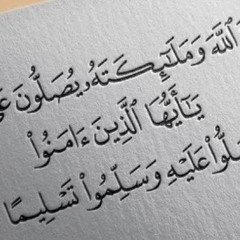 ٱللَّهَ وَمَلَـٰٓئِكَتَهُۥ يُصَلُّونَ
يَـٰٓأَيُّهَا ٱلَّذِينَ ءَامَنُوا۟
عَلَيْهِ وَسَلِّمُوا۟ تَسْلِيمًا